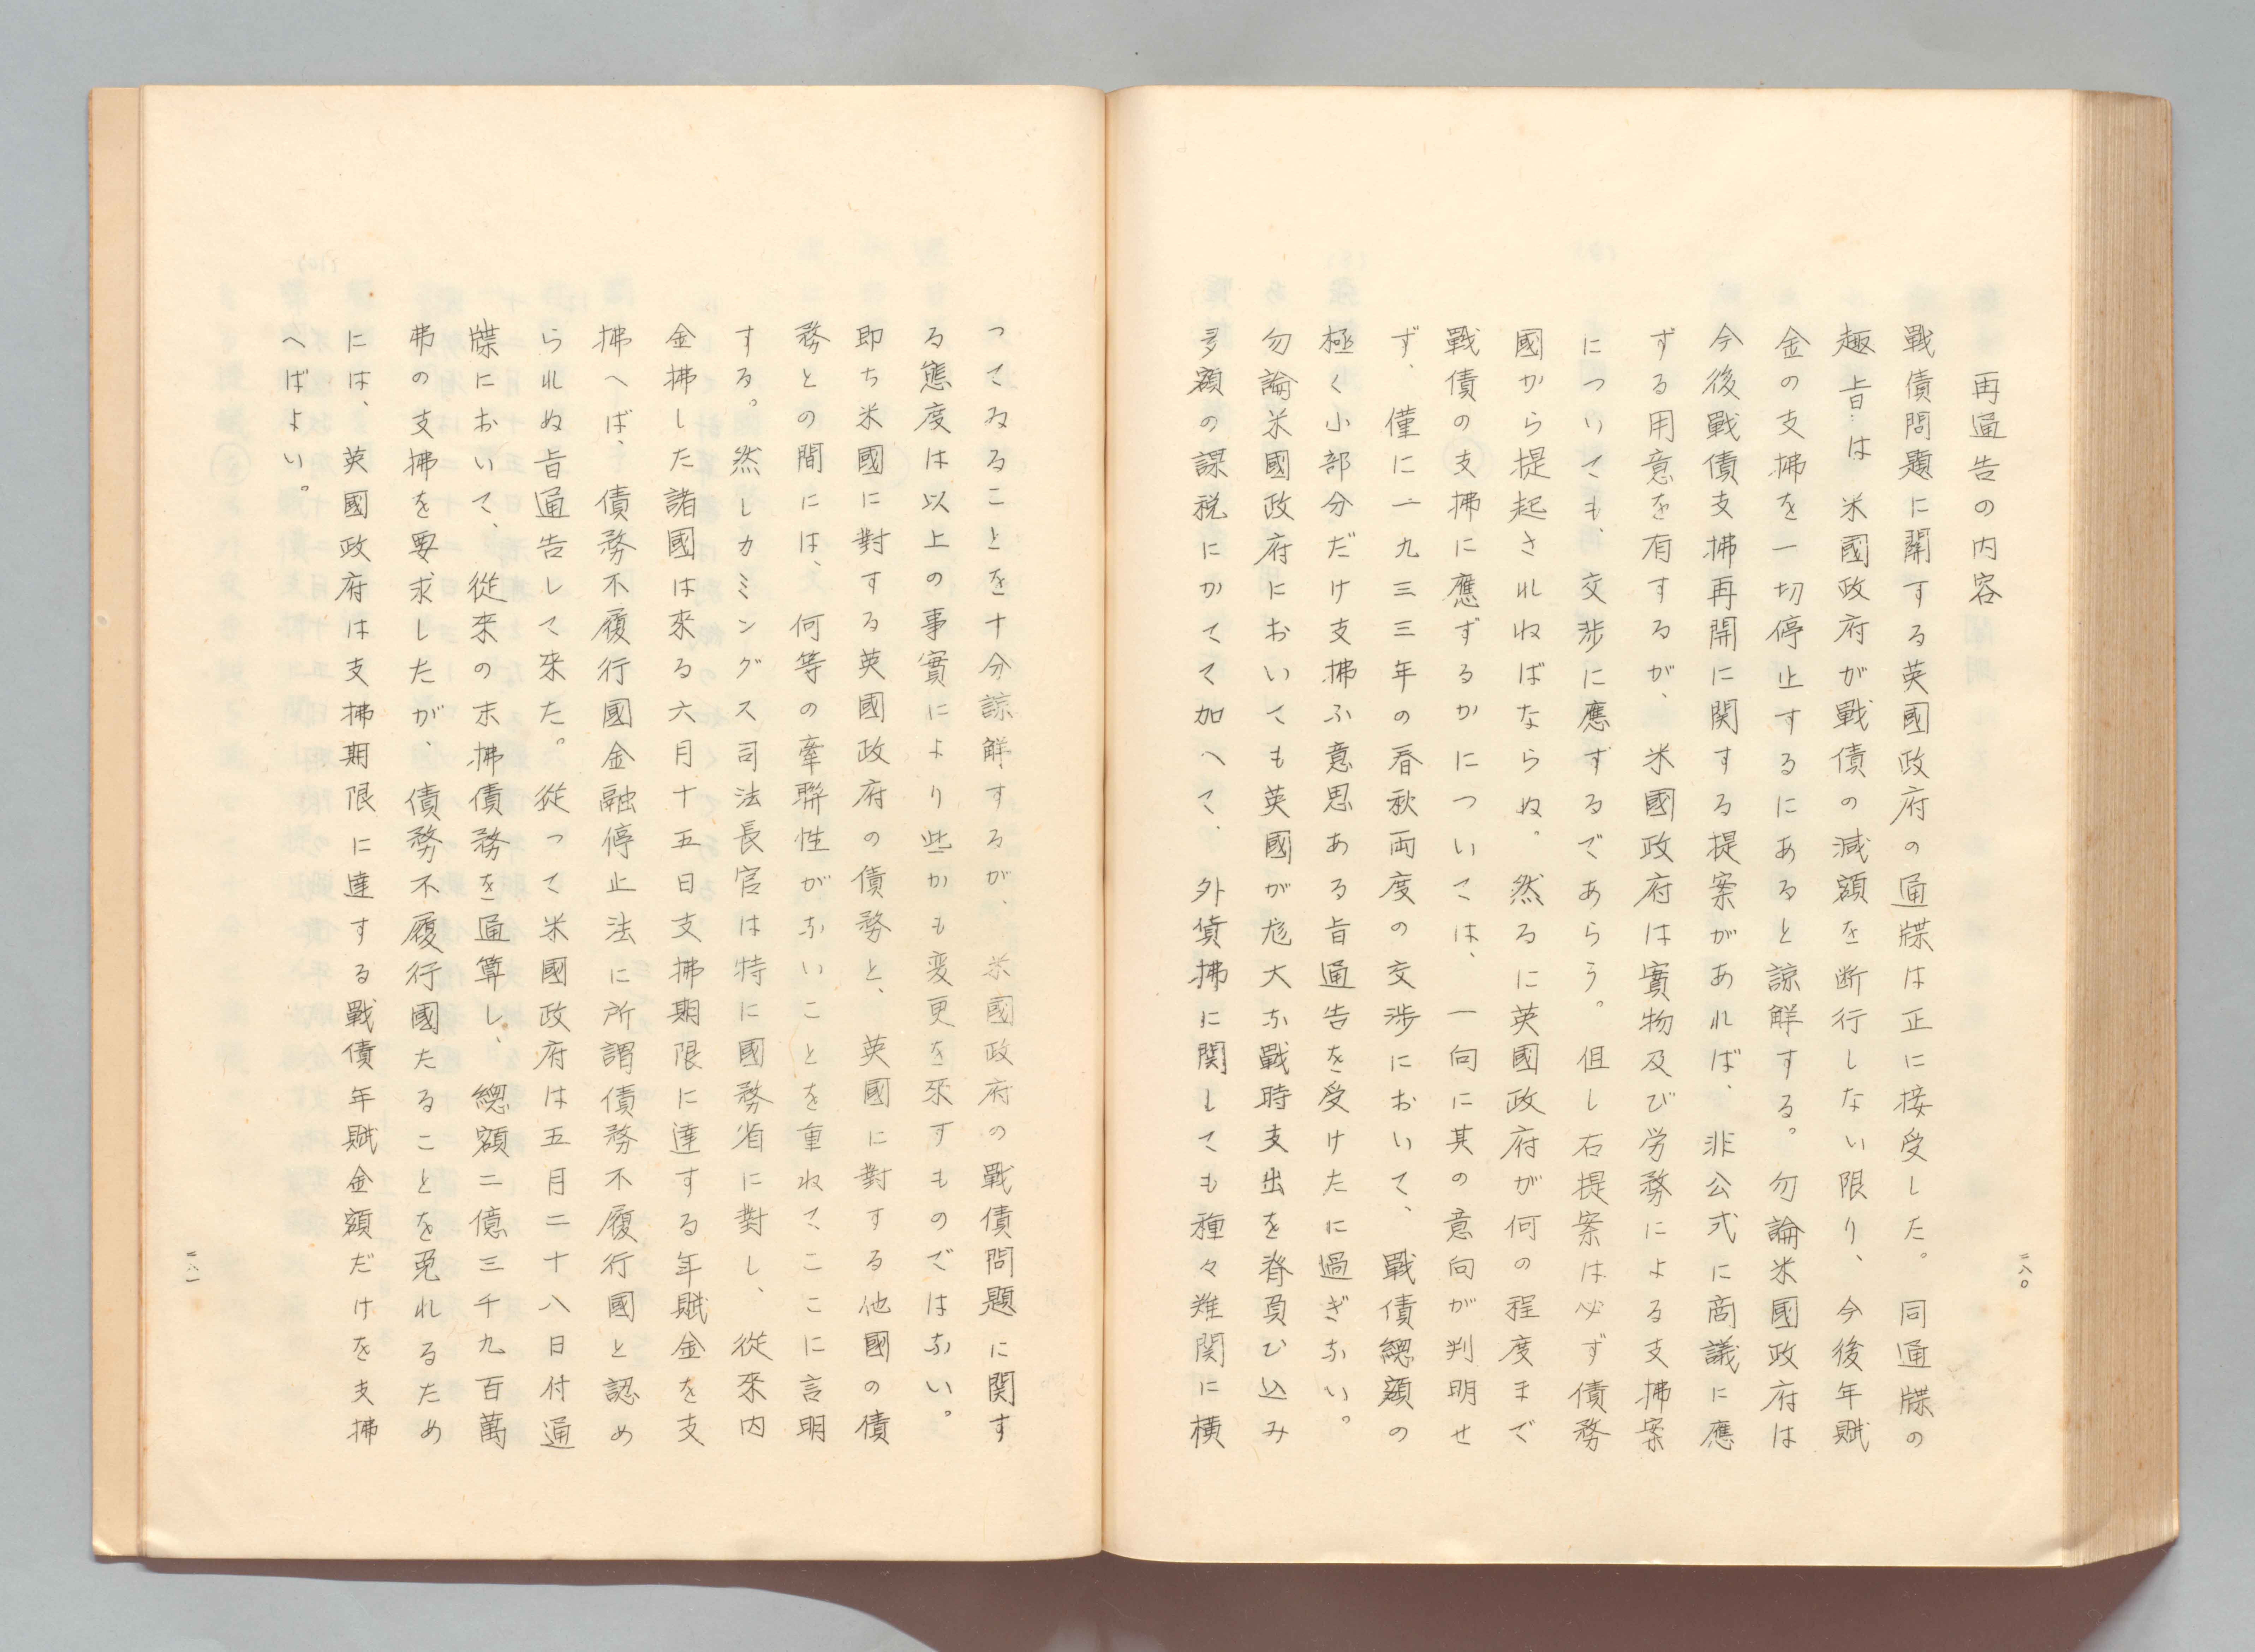 二八〇
再通告の内容
戰債問題に關する英國政府の通牒は正に接受した。同通牒の
趣旨は米國政府が戰債の減額を断行しない限り、今後年賦
金の支拂を一切停止するにあると諒解する。勿論米國政府は
今後戰債支拂再開に関する提案があれば、非公式に商議に應
ずる用意を有するが、米國政府は實物及び労務による支拂案
についても、交渉に應ずるであらう。但し右提案は必ず債務
國から提起されねばならぬ。然るに英國政府が何の程度まで
戰債の支拂に應ずるかについては、一向に其の意向が判明せ
ず、僅に一九三三年の春秋両度の交渉において、戰債總額の
極く小部分だけ支拂ふ意思ある旨通告を受けたに過ぎない。
勿論米國政府においても英國が尨大な戰時支出を脊負ひ込み
多額の課税にかてて加へて、外債拂に関しても種々難関に横
つてゐることを十分諒解するが、米國政府の戰債問題に関す
る態度は以上の事實により些かも変更を来すものではない。
即ち米國に對する英國政府の債務と、英國に對する他國の債
務との間には、何等の牽聯性がないことを重ねてここに言明
する。然しカミングス司法長官は特に國務省に對し、從來内
金拂した諸國は來る六月十五日支拂期限に達する年賦金を支
拂へば、債務不履行國金融停止法に所謂債務不履行國と認め
られぬ旨通告して来た。従つて米國政府は五月二十八日付通
牒において、從來の未拂債務を通算し、總額二億三千九百萬
弗の支拂を要求したが、債務不履行國たることを免れるため
には、英國政府は支拂期限に達する戰債年賦金額だけを支拂
へばよい。
二八一